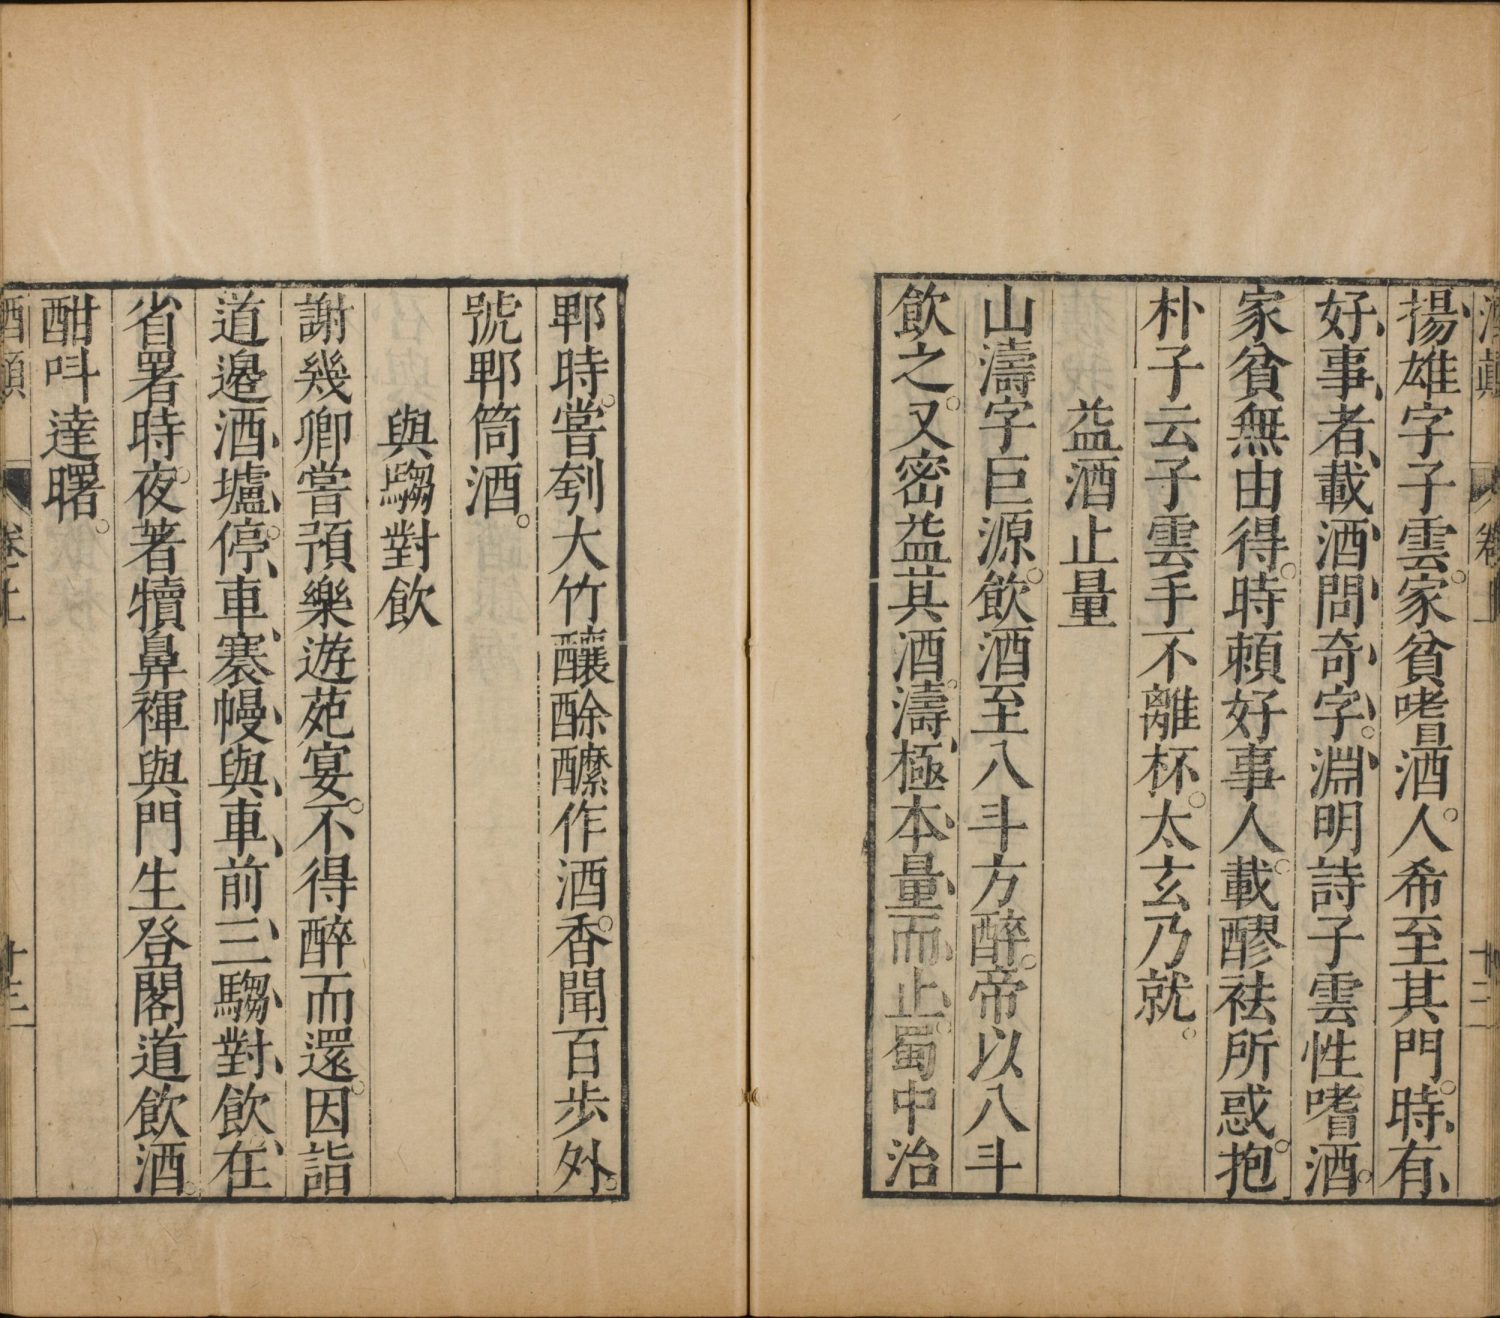 酒顛 卷上 十二
揚雄字子雲家貧嗜酒人希至其門時有
好事者載酒問奇字淵明詩子雲性嗜酒
家貧無由得時賴好事人載醪祛所惑抱
朴子云子雲手不離杯太玄乃就
益酒止量
山濤字巨源飲酒至八斗方醉帝以八斗
飲之又密益其酒濤極本量而止蜀中治
郫時嘗刳大竹釀酴醾作酒香聞百步外
號郫筒酒
與騶對飲
謝幾卿嘗預樂遊苑宴不得醉而還因詣
道邊酒壚停車褰幔與車前三騶對飲在
省署時夜著犢鼻褌與門生登閣道飲酒
酣呌達曙
酒顛 卷上 十三